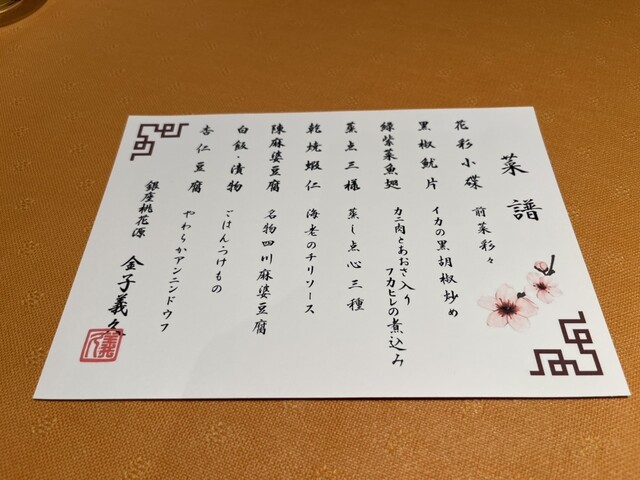 菜譜
花彩小碟 前菜彩々
黒椒魷片 イカの黒胡椒炒め
緑紫菜魚翅 カニ肉とあおさ入り
フカヒレの煮込み
蒸点三様 蒸し点心三種
乾焼蝦仁 海老のチリソース
陳麻婆豆腐 名物四川麻婆豆腐
白飯・漬物 ごはん・つけもの
杏仁豆腐 やわらかアンニンドウフ
銀座桃花源 金子義久